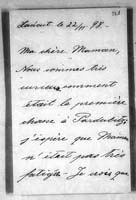 le 22/11 98.
Ma chère Maman,
Nous sommes très
comment
était la première
chasse à Pardubitz
j'espère que Mama
n'était pas très
fatiguée - Je crois que